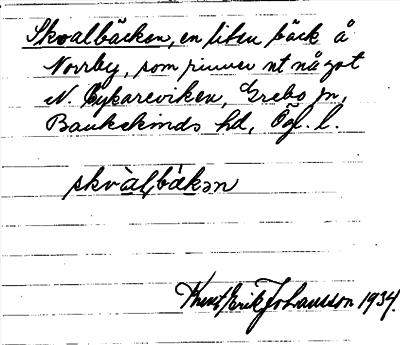 Skvalbäcken, en liten bäck å
Norrby, som rinner ut något
N. Cykareviken, Grebo sn,
Bankekinds hd, Ög. l.
skvàl,bäkən
Knut Erik Johansson 1934.